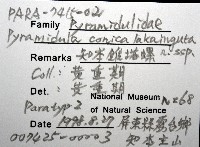 PARA-7415-021
Family Pyramidulidae
Pyramidula conica
Remarks 知本錐蝸螺
Coll.: 黃重期
Det.: 黃重期
National Museum
Paratype of Natural Science N=68
Date 1998.8.29 屏東縣霧台鄉
007425-00003 知本主山